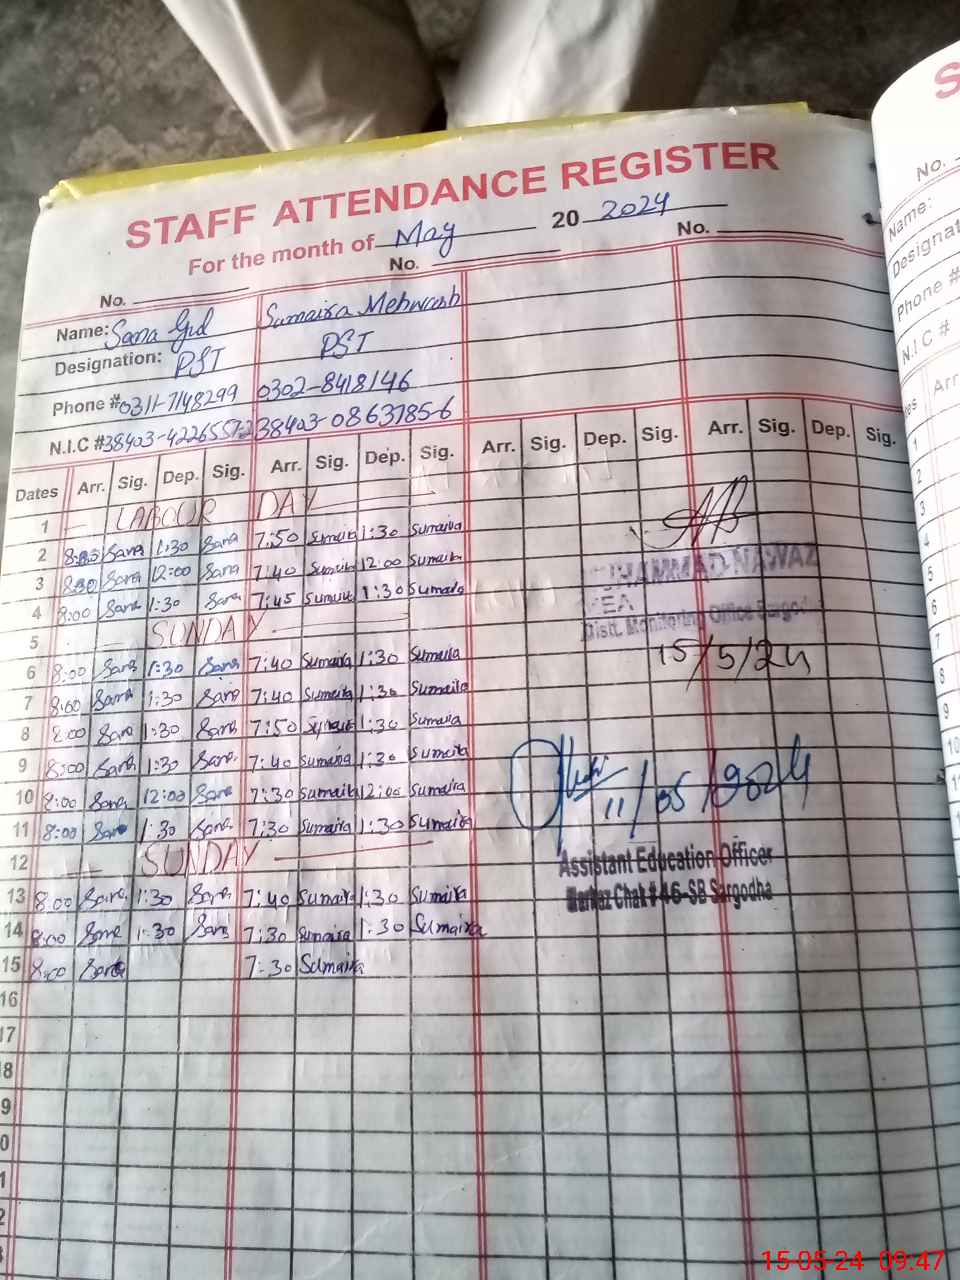 STAFF ATTENDANCE REGISTER
For the month of May 20 2024
No. No. No.
Name: Sana Gul Sumaira Mehwash
Designation: PST PST
Phone # 0311-7148299 0302-8418146
N.I.C # 38403-4226557-2 38403-0863785-6
Dates Arr. Sig. Dep. Sig. Arr. Sig. Dep. Sig. Arr. Sig. Dep. Sig. Arr. Sig. Dep. Sig.
1 LABOUR DAY
2 Sana 1:30 Sana 7:50 Sumaira 1:30 Sumaira
3 Sana 12:00 Sana 7:40 Sumaira 12:00 Sumaira
4 8:00 Sana 1:30 Sana 7:45 Sumaira 1:30 Sumaira
5 SUNDAY
6 8:00 Sana 1:30 Sana 7:40 Sumaira 1:30 Sumaira
7 8:00 Sana 1:30 Sana 7:40 Sumaira 1:30 Sumaira
8 8:00 Sana 1:30 Sana 7:50 Sumaira 1:30 Sumaira
9 8:00 Sana 1:30 Sana 7:40 Sumaira 1:30 Sumaira
10 8:00 Sana 12:00 Sana 7:30 Sumaira 12:00 Sumaira
11 8:00 Sana 1:30 Sana 7:30 Sumaira 1:30 Sumaira
12 SUNDAY
13 8:00 Sana 1:30 Sana 7:40 Sumaira 1:30 Sumaira
14 8:00 Sana 1:30 Sana 7:30 Sumaira 1:30 Sumaira
15 8:00 Sana 7:30 Sumaira
16
MUHAMMAD NAWAZ
MEA
Distt. Monitoring Office
15/5/24
11/05/2024
Assistant Education Officer
Markaz Chak # 46-SB Sargodha
No.
Name:
Phone #
N.I.C #
Arr
1
2
3
4
5
6
7
8
9
10
15-05-24 09:47